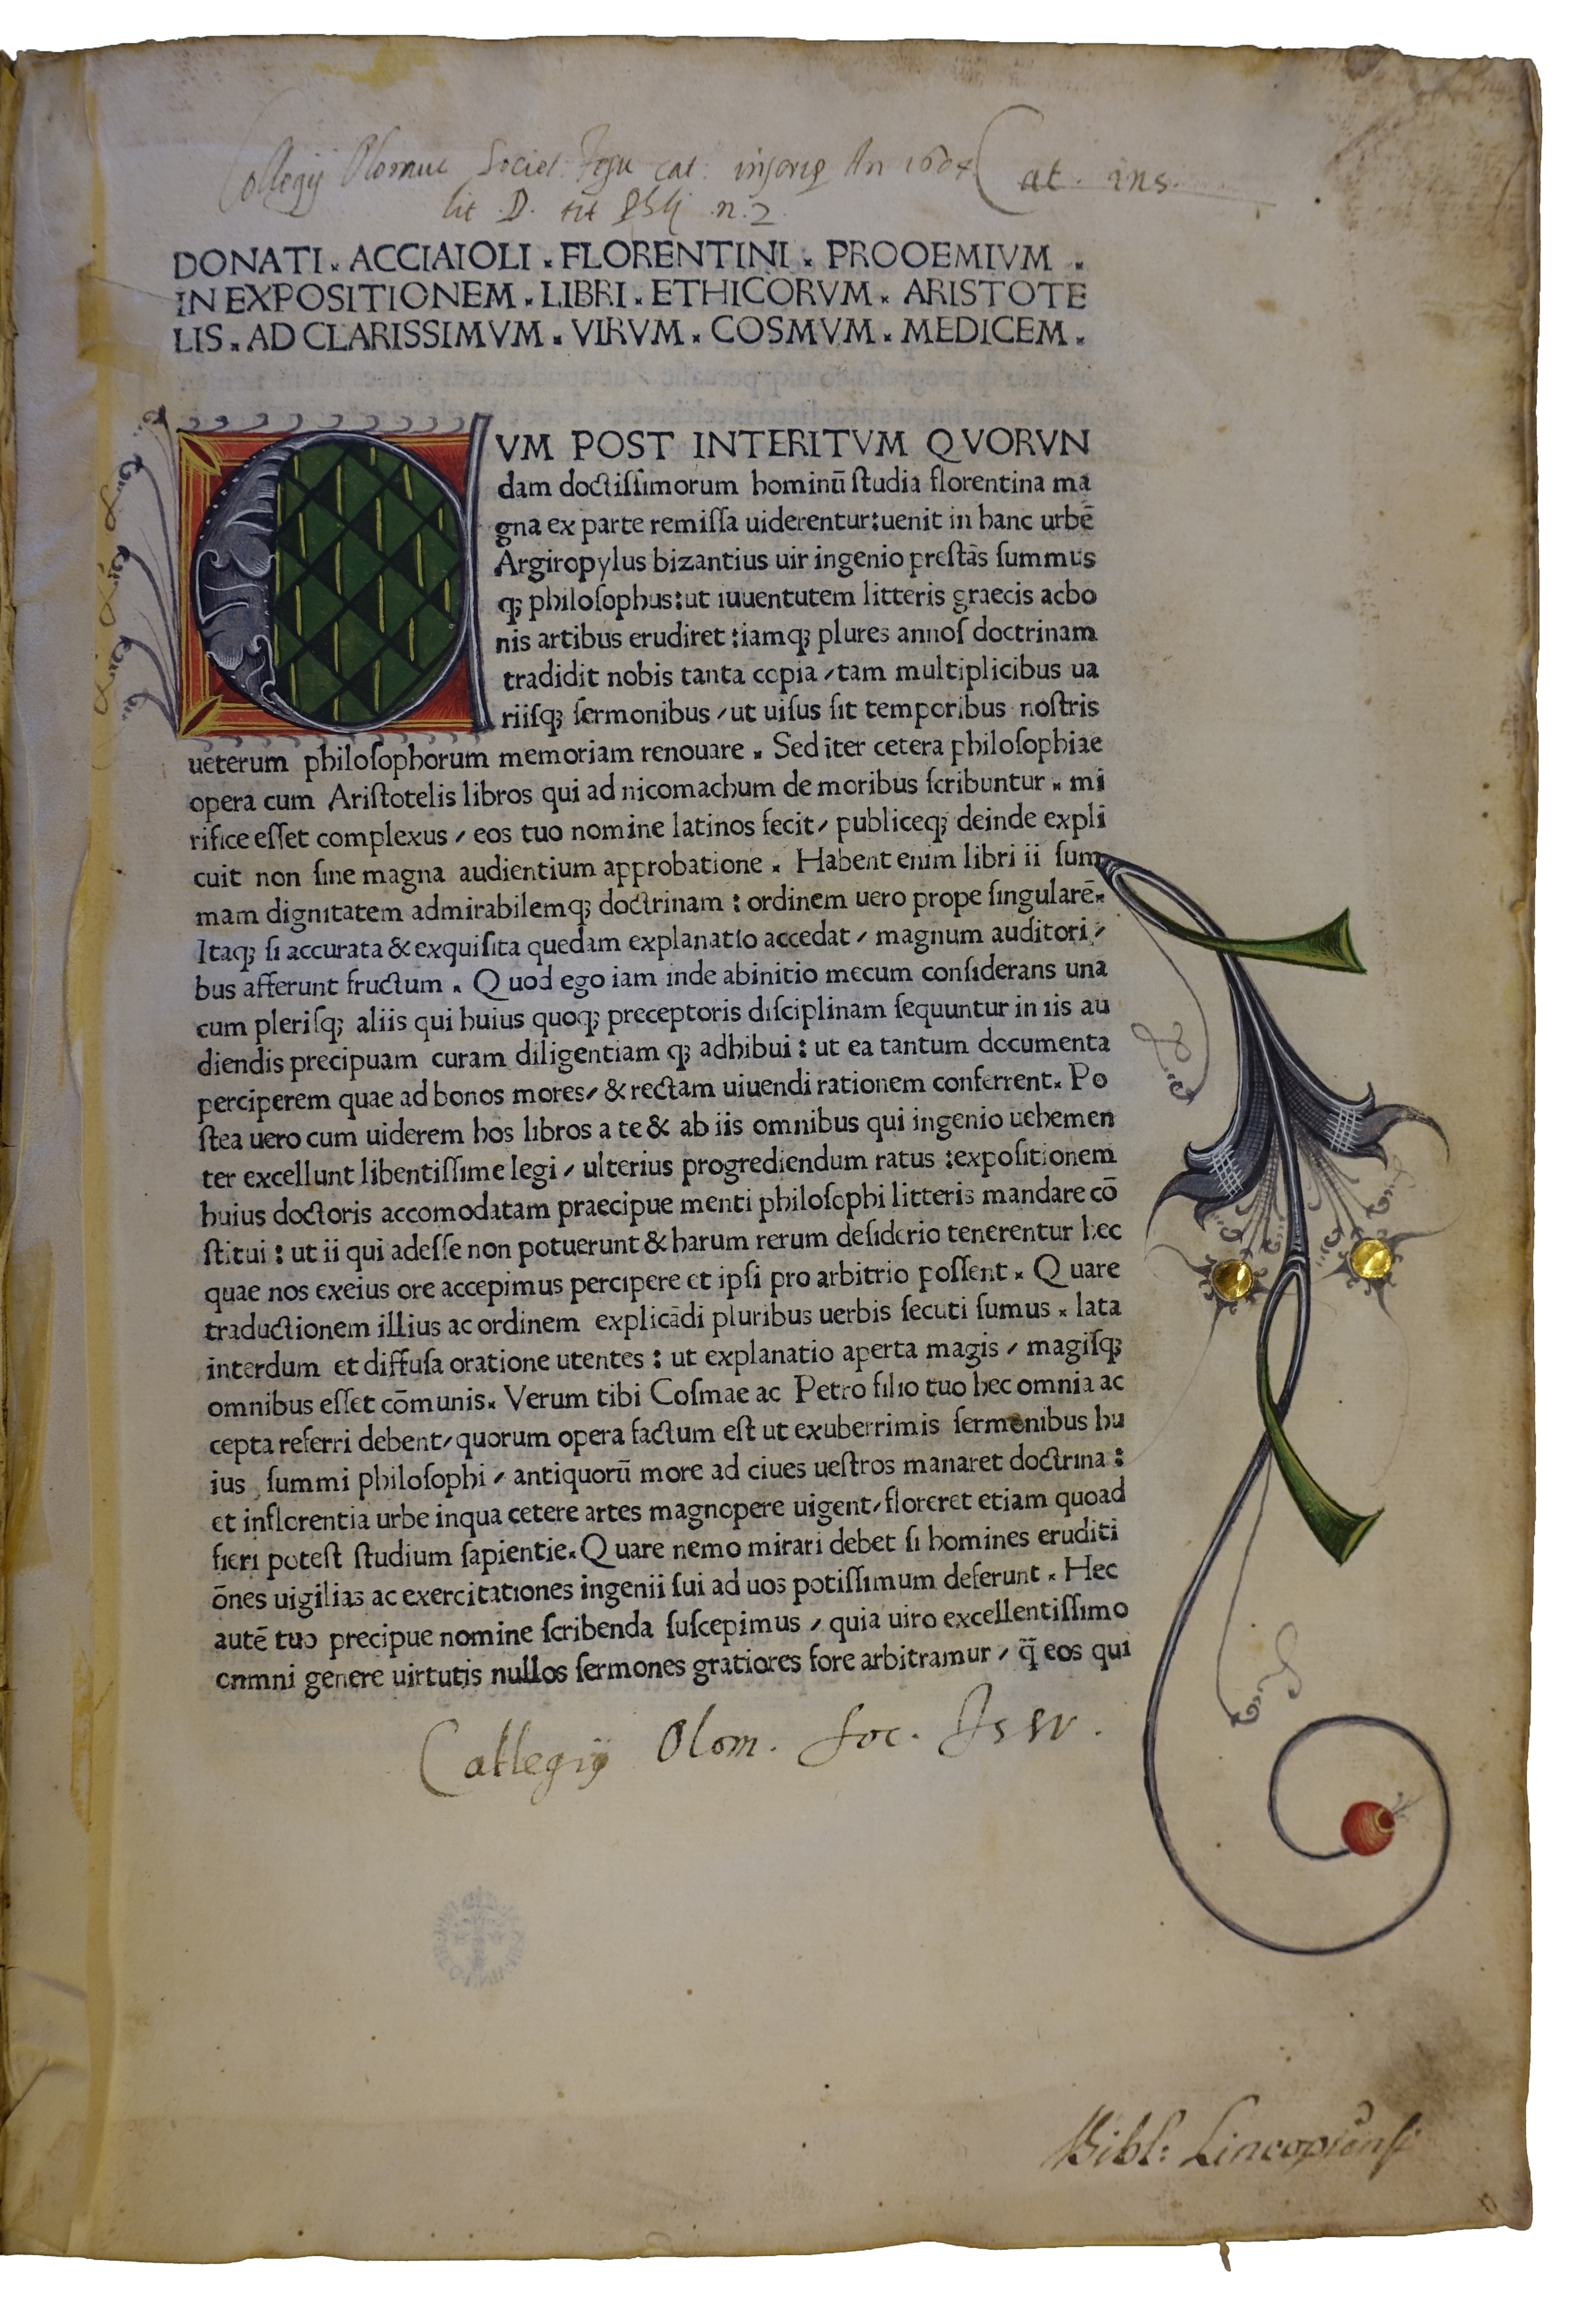 Collegij Olomuc Societ. Jesu cat. inscrip. An 1604 Cat. ins.
lit. D. tit. n. 2
DONATI . ACCIAIOLI . FLORENTINI . PROOEMIVM .
IN EXPOSITIONEM . LIBRI . ETHICORVM . ARISTOTE
LIS . AD CLARISSIMVM . VIRVM . COSMVM . MEDICEM .
QVM POST INTERITVM QVORVN
dam doctiſſimorum hominū ſtudia florentina ma
gna ex parte remiſſa uiderentur:uenit in hanc urbē
Argiropylus bizantius uir ingenio preſtās ſummus
qꝫ philoſophus:ut iuuentutem litteris graecis acbo
nis artibus erudiret :iamqꝫ plures annoſ doctrinam
tradidit nobis tanta copia / tam multiplicibus ua
riiſqꝫ ſermonibus / ut uiſus ſit temporibus noſtris
ueterum philoſophorum memoriam renouare . Sed īter cetera philoſophiae
opera cum Ariſtotelis libros qui ad nicomachum de moribus ſcribuntur . mi
rifice eſſet complexus / eos tuo nomine latinos fecit / publiceqꝫ deinde expli
cuit non ſine magna audientium approbatione . Habent enim libri ii ſum
mam dignitatem admirabilemqꝫ doctrinam : ordinem uero prope ſingularē.
Itaqꝫ ſi accurata & exquiſita quedam explanatio accedat / magnum auditori /
bus afferunt fructum . Quod ego iam inde abinitio mecum conſiderans una
cum pleriſqꝫ aliis qui huius quoqꝫ preceptoris diſciplinam ſequuntur in iis au
diendis precipuam curam diligentiam qꝫ adhibui : ut ea tantum documenta
perciperem quae ad bonos mores / & rectam uiuendi rationem conferrent. Po
ſtea uero cum uiderem hos libros a te & ab iis omnibus qui ingenio uehemen
ter excellunt libentiſſime legi / ulterius progrediendum ratus :expoſitionem
huius doctoris accomodatam praecipue menti philoſophi litteris mandare cō
ſtitui : ut ii qui adeſſe non potuerunt & harum rerum deſiderio tenerentur hec
quae nos exeius ore accepimus percipere et ipſi pro arbitrio poſſent . Quare
traductionem illius ac ordinem explicādi pluribus uerbis ſecuti ſumus . lata
interdum et diffuſa oratione utentes : ut explanatio aperta magis / magiſqꝫ
omnibus eſſet cōmunis. Verum tibi Coſmae ac Petro filio tuo hec omnia ac
cepta referri debent / quorum opera factum eſt ut exuberrimis ſermonibus hu
ius ſummi philoſophi / antiquorū more ad ciues ueſtros manaret doctrina :
et inflorentia urbe inqua cetere artes magnopere uigent / floreret etiam quoad
fieri poteſt ſtudium ſapientie. Quare nemo mirari debet ſi homines eruditi
ōnes uigilias ac exercitationes ingenii ſui ad uos potiſſimum deferunt . Hec
autē tuo precipue nomine ſcribenda ſuſcepimus / quia uiro excellentiſſimo
omni genere uirtutis nullos ſermones gratiores fore arbitramur / q̄ eos qui
Collegij Olom. Soc. Jesu.
Bibl: Lincopiensi